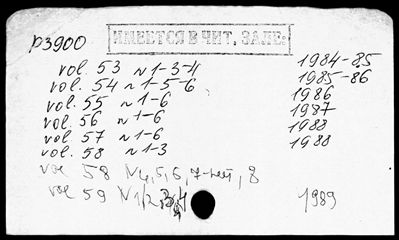 р3900
ИМЕЕТСЯ В ЧИТ. ЗАЛЕ:
vol. 53 №1-3-4 1984-85
vol. 54 №1-5-6 1985-86
vol. 55 №1-6 1986
vol. 56 №1-6 1987
vol. 57 №1-6 1988
vol. 58 №1-3 1988
vol 58 №4,5,6, 7-нет, 8
vol 59 №1/2,3,4 1989